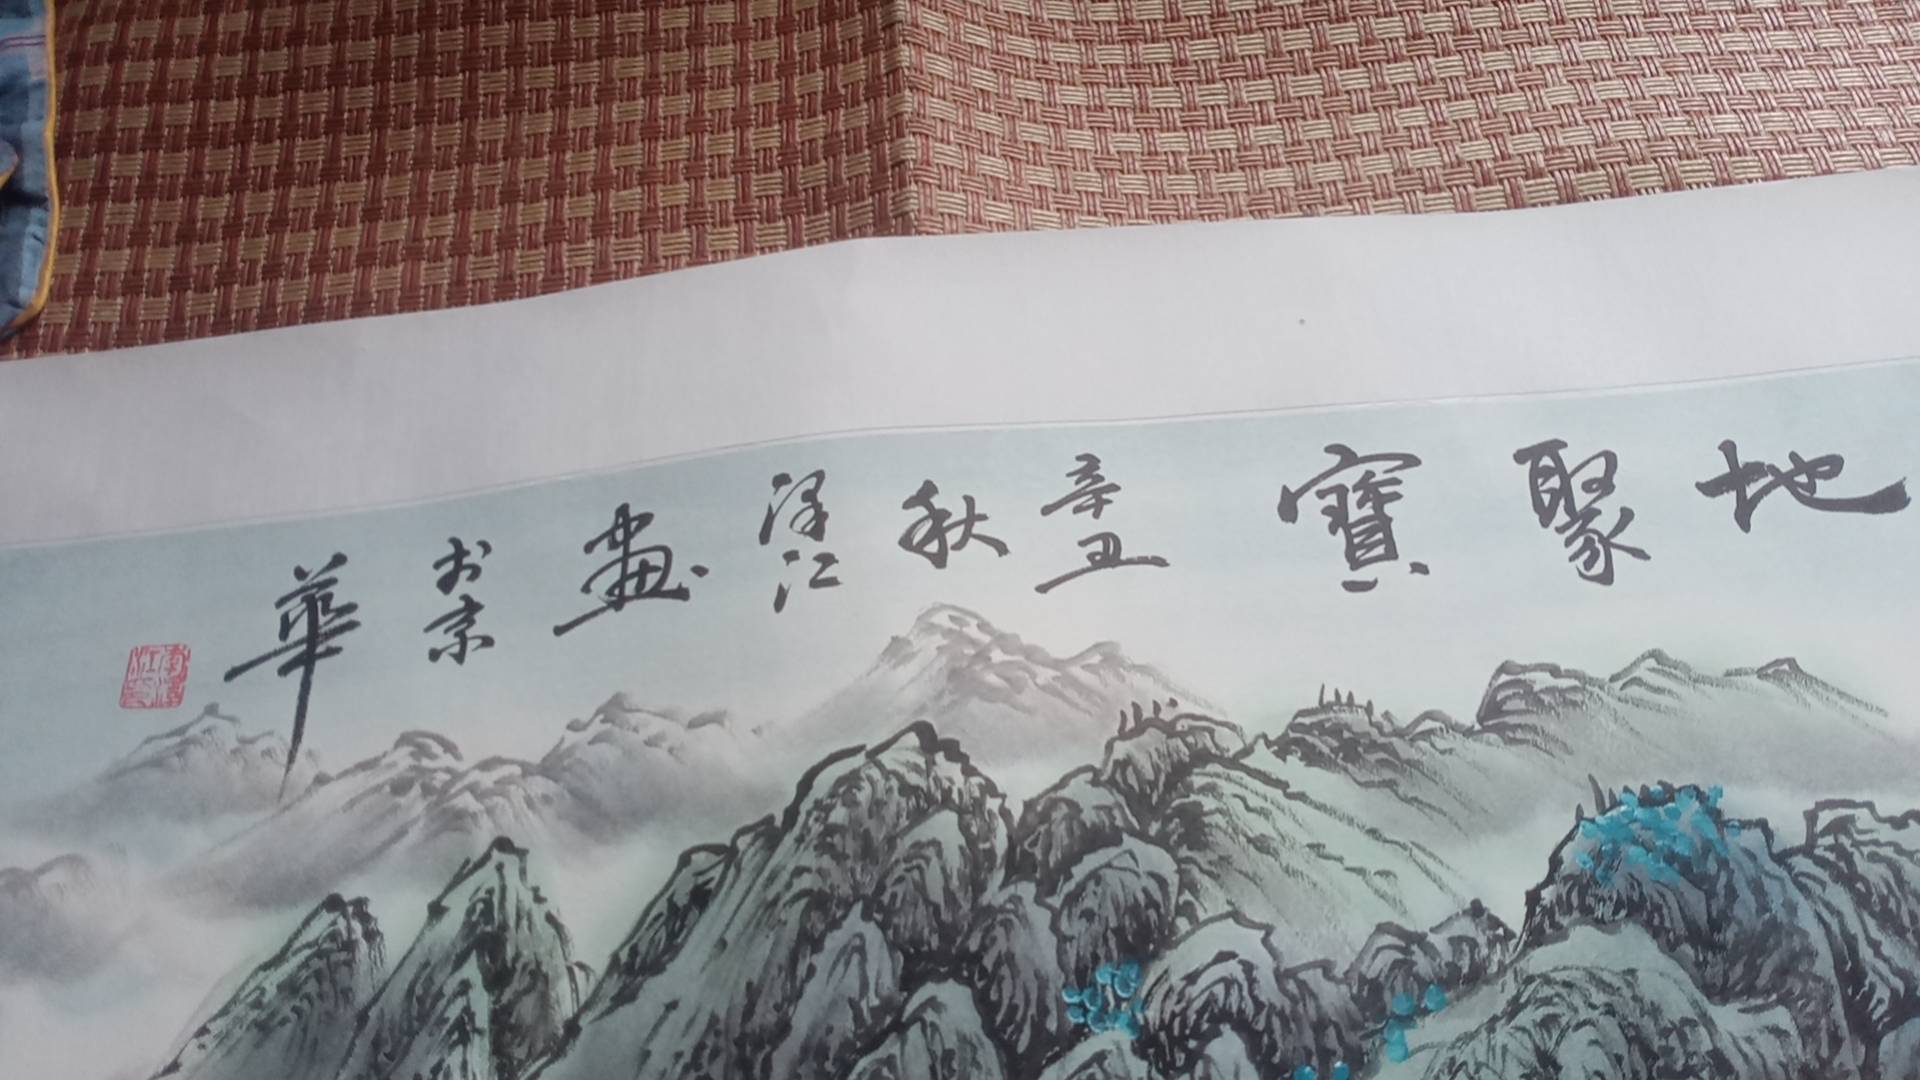 地聚寶辛丑秋泽江畫於京華